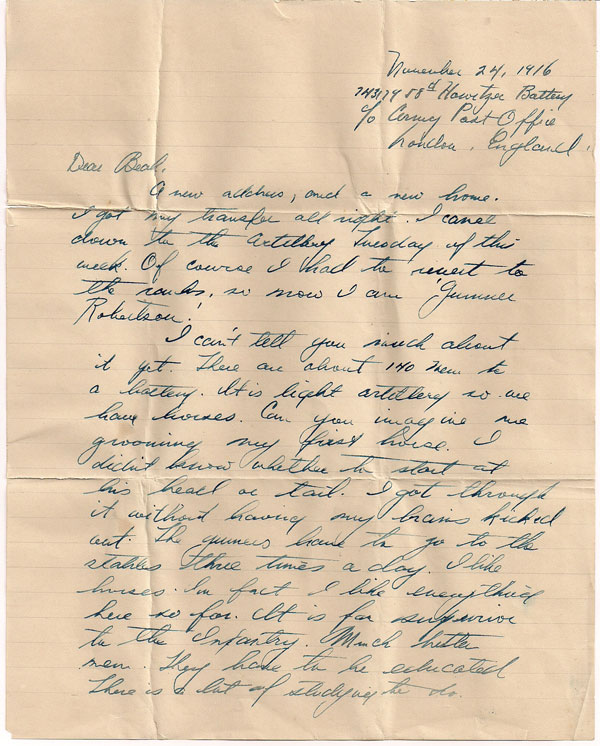 November 24, 1916
743179 88th Howitzer Battery
c/o Army Post Office
London, England.
Dear Beak,
A new address, and a new home.
I got my transfer all right. I came
down to the Artillery Tuesday of this
week. Of course I had to revert to
the ranks, so now I am "Gunner
Robertson."
I can't tell you much about
it yet. There are about 140 men to
a battery. It is light artillery so we
have horses. Can you imagine me
grooming my first horse. I
didn't know whether to start at
his head or tail. I got through
it without having my brains kicked
out. The gunners have to go to the
stables three times a day. I like
horses. In fact I like everything
here so far. It is far superior
to the Infantry. Much better
men. They have to be educated
There is a lot of studying to do.